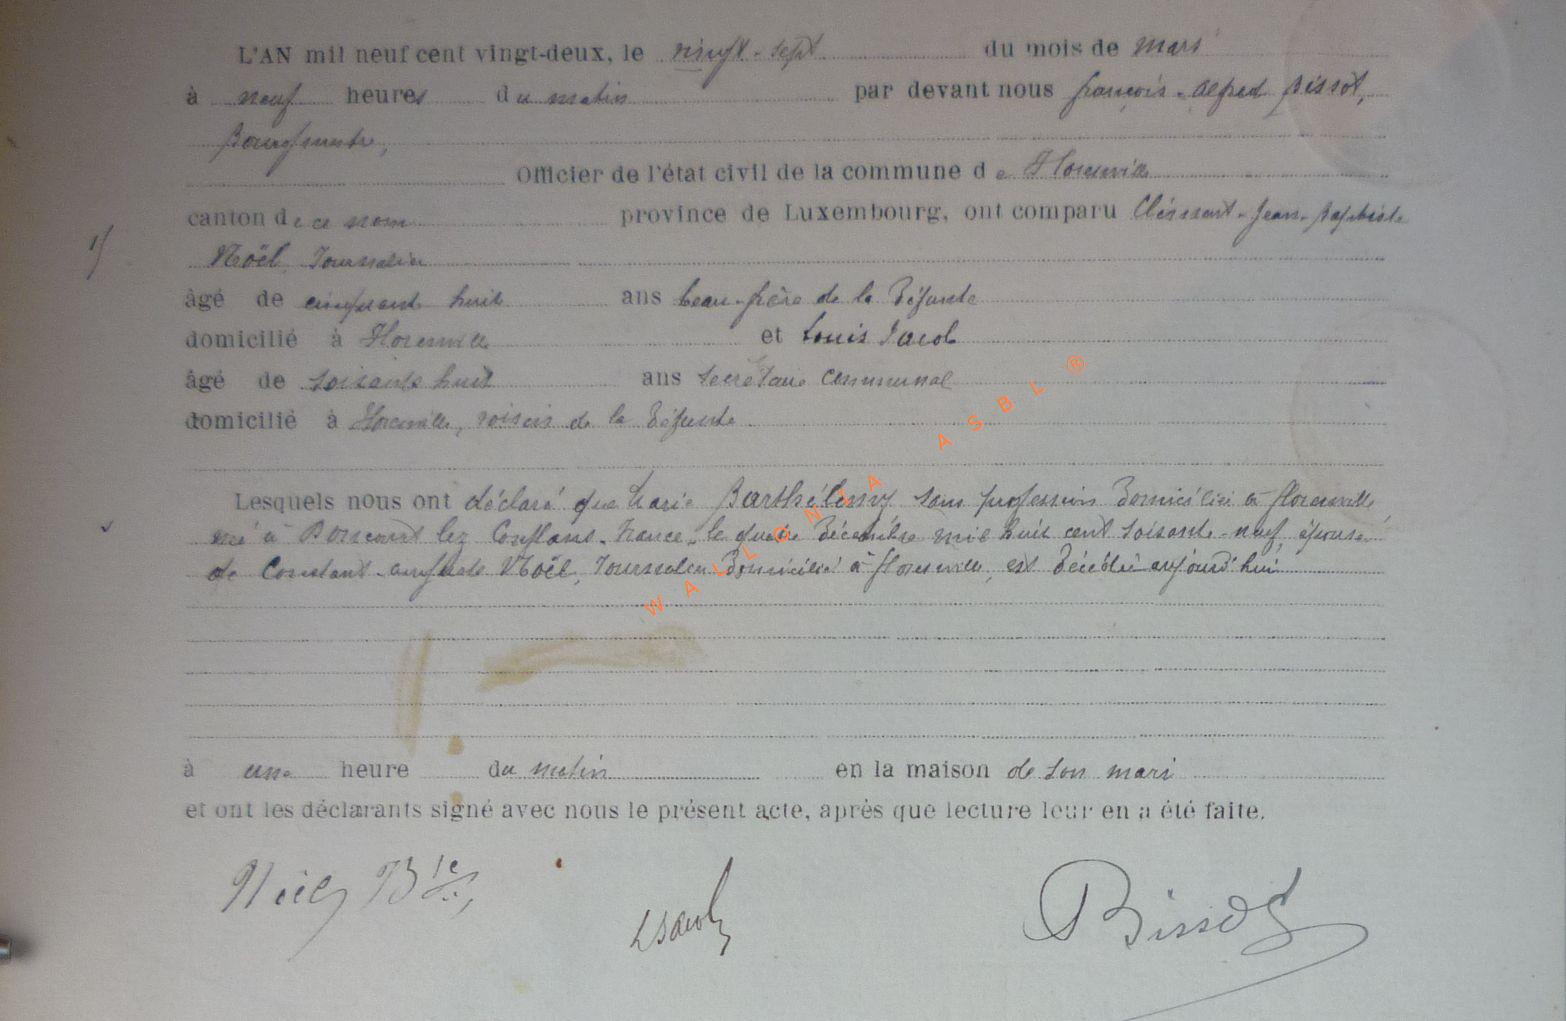 L'AN mil neuf cent vingt-deux, le vingt-sept du mois de mars
à neuf heures du matin par devant nous françois-Alfred Bissot,
Bourgmestre,
Officier de l'état civil de la commune de Florenville
canton de ce nom province de Luxembourg, ont comparu Clément-Jean-Baptiste
1/
Noël, Journalier
âgé de cinquante huit ans beau-frère de la Défunte
domicilié à Florenville et Louis Jacob
âgé de soixante huit ans secrétaire communal
domicilié à Florenville, voisin de la Défunte
Lesquels nous ont déclaré que Marie Barthélemy sans profession Domiciliée à florenville,
née à Boncourt lez Conflans-France, le Décembre mil huit cent soixante-neuf, épouse
de Constant Noël, Journalier Domicilié à florenville, est Décédée aujourd'hui
à une heure du matin en la maison de son mari
et ont les déclarants signé avec nous le présent acte, après que lecture leur en a été faite.
Noël Bte
L Jacob
Bissot
WALLONIA ASBL ®